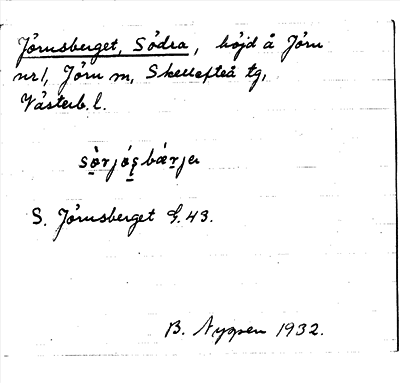 Jörnsberget, Södra, höjd å Jörn
nr1, Jörn sn, Skellefteå tg,
Västerb. l.
sòrjǿʂbærjer
S. Jörnsberget E.43.
B. Nygren 1932.